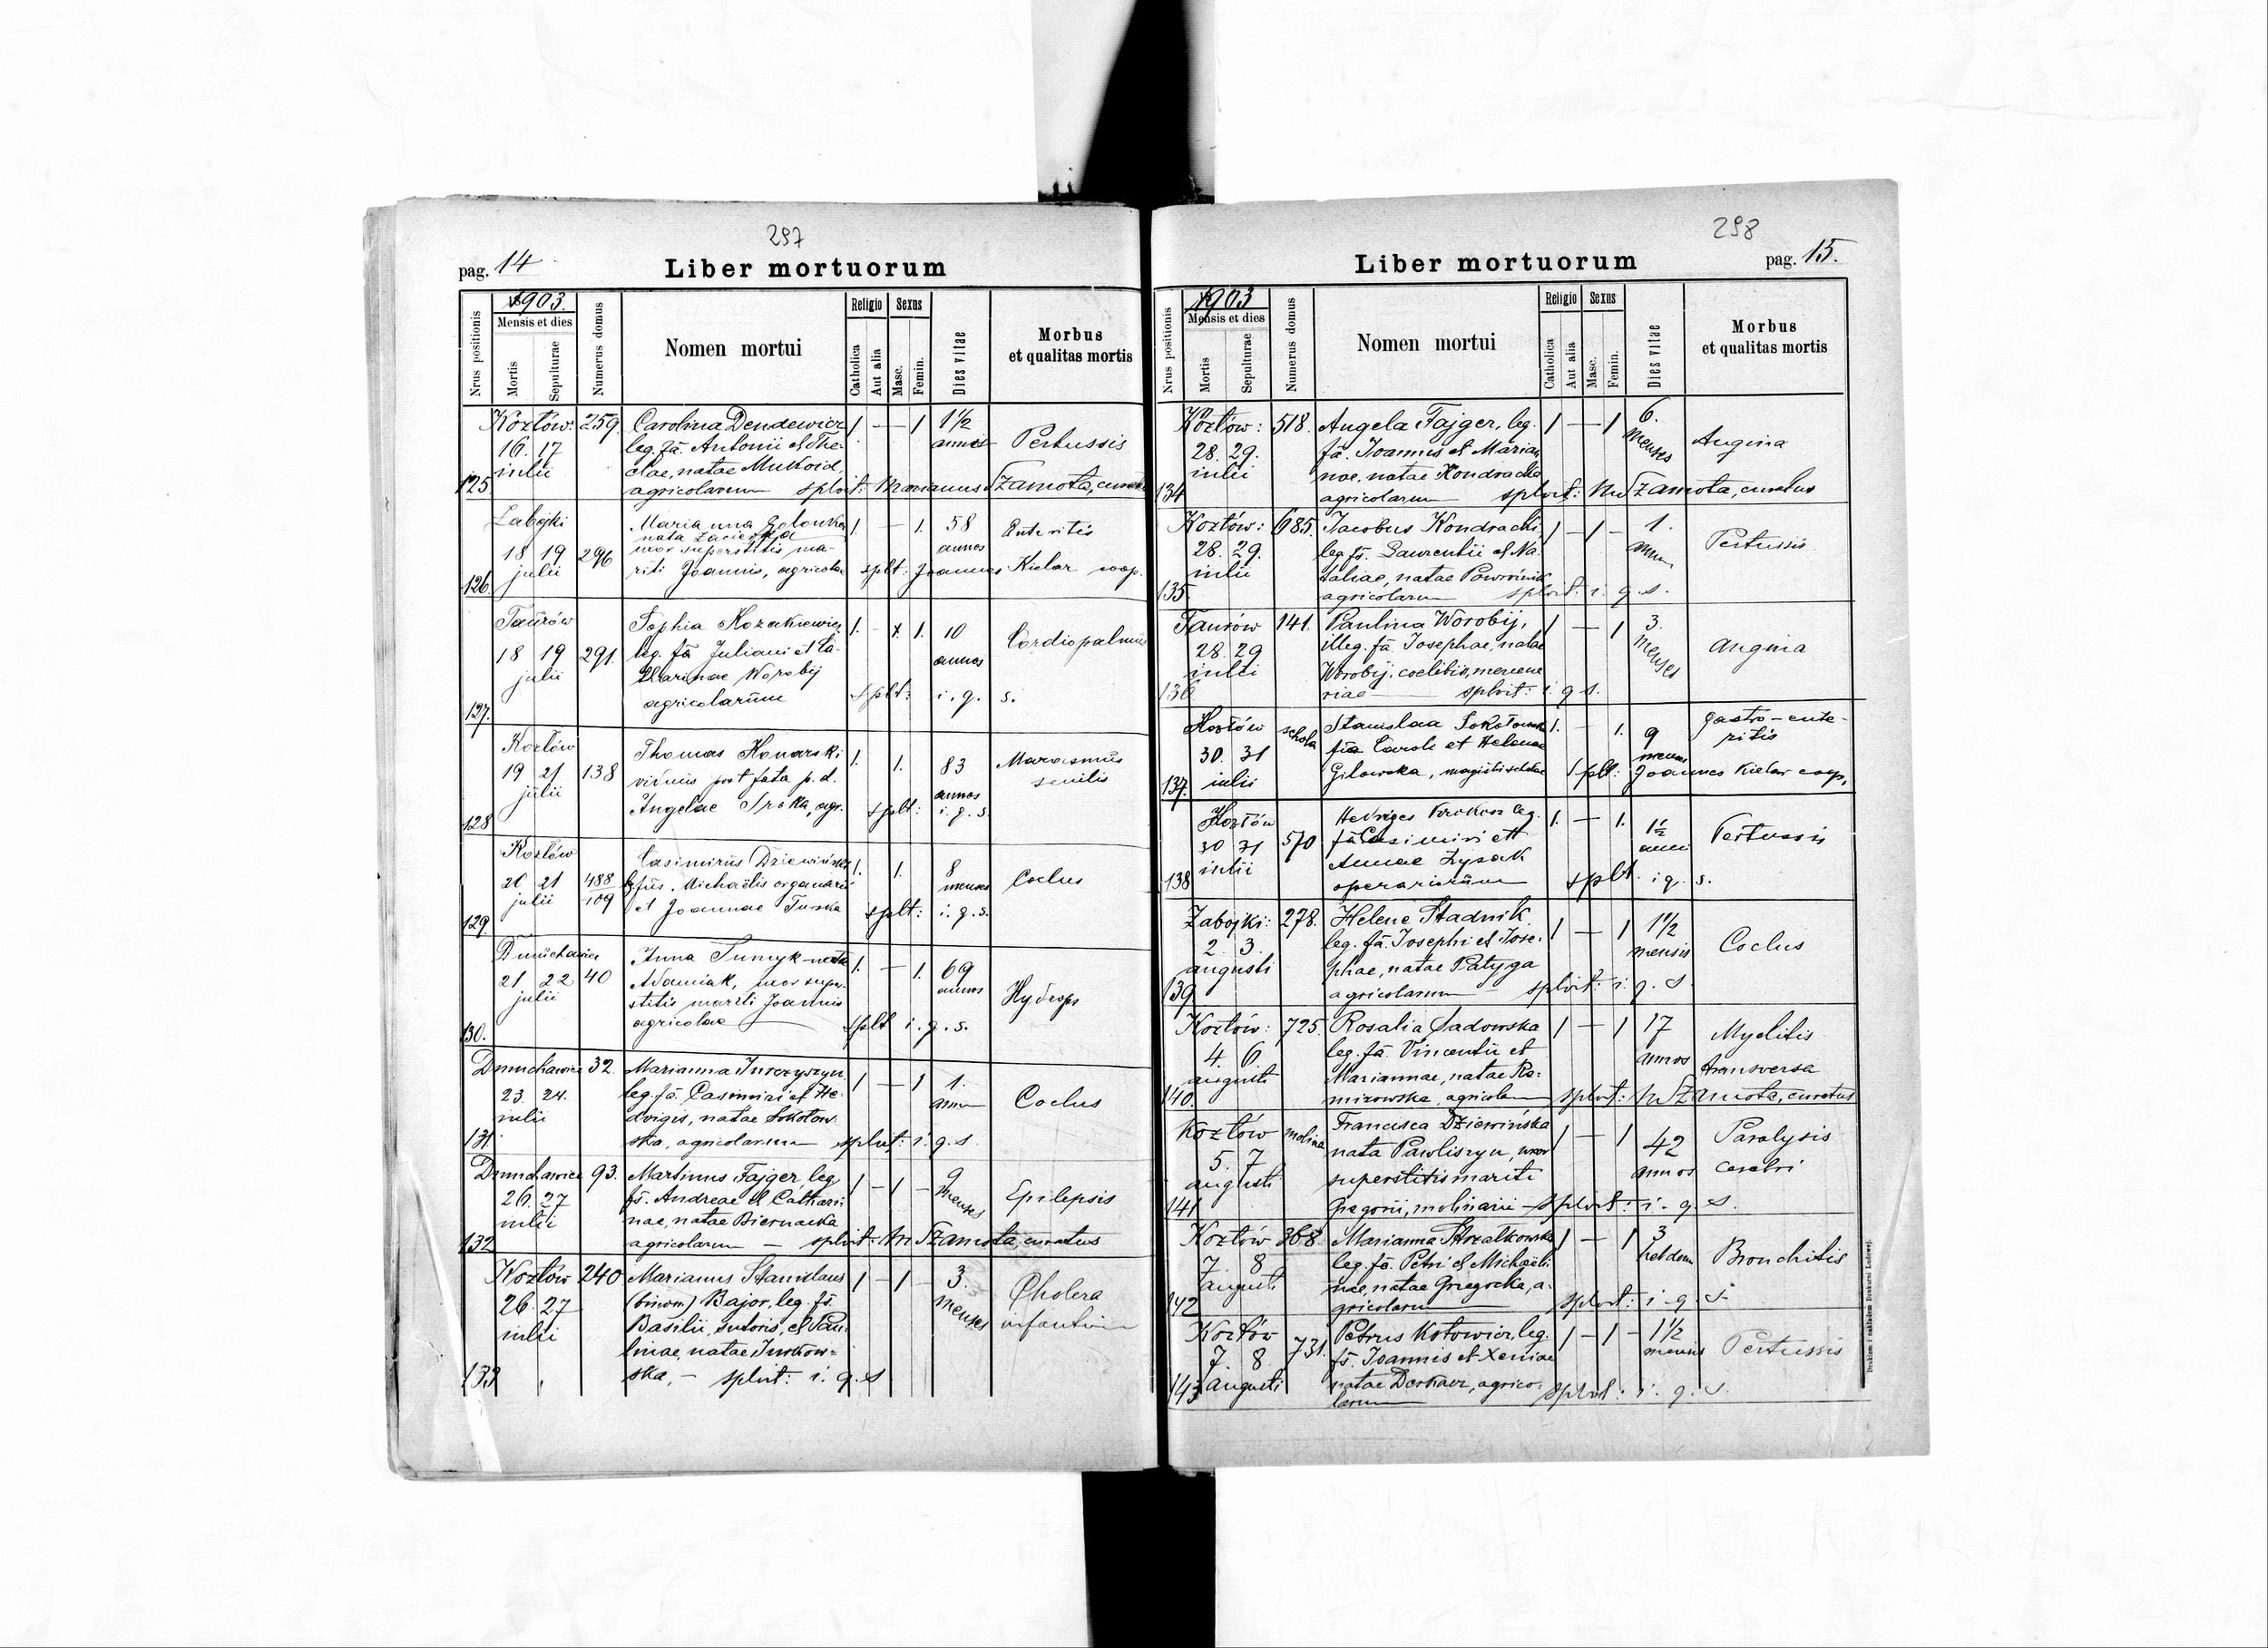 297
pag. 14
Liber mortuorum
Nrus positionis
1903.
Mensis et dies
Mortis
Sepulturae
Numerus domus
Nomen mortui
Religio
Catholica
Aut alia
Sexus
Masc.
Femin.
Dies vitae
Morbus
et qualitas mortis
Kozłów: 259. Carolina Dendewicz 1 — 1 1½
16. 17 leg. fa. Antonii et The- annis Pertussis
iulii clae, natae Mukoid,
125 agricolarum splvit: Marianus Szamota, curatus
Zabojki Marianna 1. — 1. 58 Enteritis
nata
18 19 296 uxor superstitis ma- annos
126. julii riti Joannis, agricolae splt: Joannes Kielar coop.
Taurów Sophia Kozakiewicz 1. - x 1. 10 Cordiopalmus
18 19 291. leg. fa Juliani et Ca- annos
julii tharinae Worobij
127. agricolarum splt: i. q. s.
Kozłów Thomas Konarski 1. 1. 83 Marasmus
19 21 138 viduus post fata p. d. annos senilis
128 julii Angelae Sroka, agr. splt: i. q. s.
Kozłów Casimirus Dziewiński 1. 1. 8 Coclus
20 21 488 Michaëlis organarii menses
109
129 julii et Joannae Turska splt: i. q. s.
Dmuchawiec Anna Tumyk nata 1. — 1. 69
21 22 40 Adamiak, uxor super- annos Hydrops
julii stitis mariti Joannis
130. agricolae splt i. q. s.
Dmuchawiec 32. Marianna Jurczyszyn 1 — 1 1.
23. 24. leg. fa. Casimiri et He- annum Coclus
iulii dvigis, natae Sokołow-
131 ska, agricolarum splvit: i. q. s.
Dmuchawiec 93. Martinus Fajger, leg. 1 — 1 — 9
26. 27 fs. Andreae et Cathari- menses Epilepsis
iulii nae, natae Biernacka
132 agricolarum — splvit: M Szamota, curatus
Kozłów 240 Marianus Stanislaus 1 — 1 3. Cholera
26. 27 (binom) Bajor, leg. fs. menses infantum
iulii Basilii, sutoris, et Pau-
linae, natae Jurkow-
133 ska, — splvit: i. q. s
298
Liber mortuorum
pag. 15.
Nrus positionis
1903
Mensis et dies
Mortis
Sepulturae
Numerus domus
Nomen mortui
Religio
Catholica
Aut alia
Sexus
Masc.
Femin.
Dies vitae
Morbus
et qualitas mortis
Kozłów: 518. Angela Fajger, leg. 1 — 1 6.
28. 29. fa. Joannis et Marian- menses Angina
iulii nae, natae Kondracka
134 agricolarum splvit: M Szamota, curatus
Kozłów: 685. Jacobus Kondracki, 1 — 1 — 1.
28. 29. leg. fs. Laurentii et Na- annum Pertussis
iulii taliae, natae Powroźnik
135. agricolarum splvit: i. q. s.
Taurów 141. Paulina Worobij, 1 — 1 3.
28. 29 illeg. fa. Josephae, natae menses Angina
iulii Worobij, coelibis, mercena
136 riae — splvit: i q s.
Kozłów schola Stanislaa Sokołowska 1. — 1. 9 Gastro-ente-
30. 31 fia Caroli et Helenae menses ritis
137. iulii Gilowska, magistri scholae splt: Joannes Kielar coop.
Kozłów Hedviges Krokosz leg. 1. — 1. 1½ Pertussis
30 31 570 fa Casimiri et anni
iulii Annae Zysak
138 operariorum splt. i q. s.
Zabojki: 278. Helene Stadnik 1 — 1 1½
2. 3. leg. fa. Josephi et Jose- mensis Coclus
augusti phae, natae Patyga
139 agricolarum splvit: i. q. s.
Kozłów: 725. Rosalia Sadowska 1 — 1 17 Myelitis
4. 6 leg. fa. Vincentii et annos transversa
augusti Mariannae, natae Ro-
140. mizowska, agricolarum splvit: M Szamota, curatus
Kozłów molina Francisca Dziewińska 1 — 1 42 Paralysis
5. 7 nata Pawliszyn, uxor annos cerebri
augusti superstitis mariti
141 Gregorii, molinarii — splvit: i. q. s.
Kozłów 368 Marianna Strzałkowska 1 — 1 3
7. 8 leg. fa. Petri et Michaëli- hebdom Bronchitis
augusti nae, natae Gregocka, a-
142 gricolarum splvit: i. q. s.
Kozłów 731. Petrus Kotowicz, leg. 1 — 1 — 1½
7. 8 fs. Joannis et Xeniae mensis Pertussis
143 augusti natae Derkacz, agrico- splvit: i. q. s.
larum
Drukiem i nakładem Drukarni Ludowej.